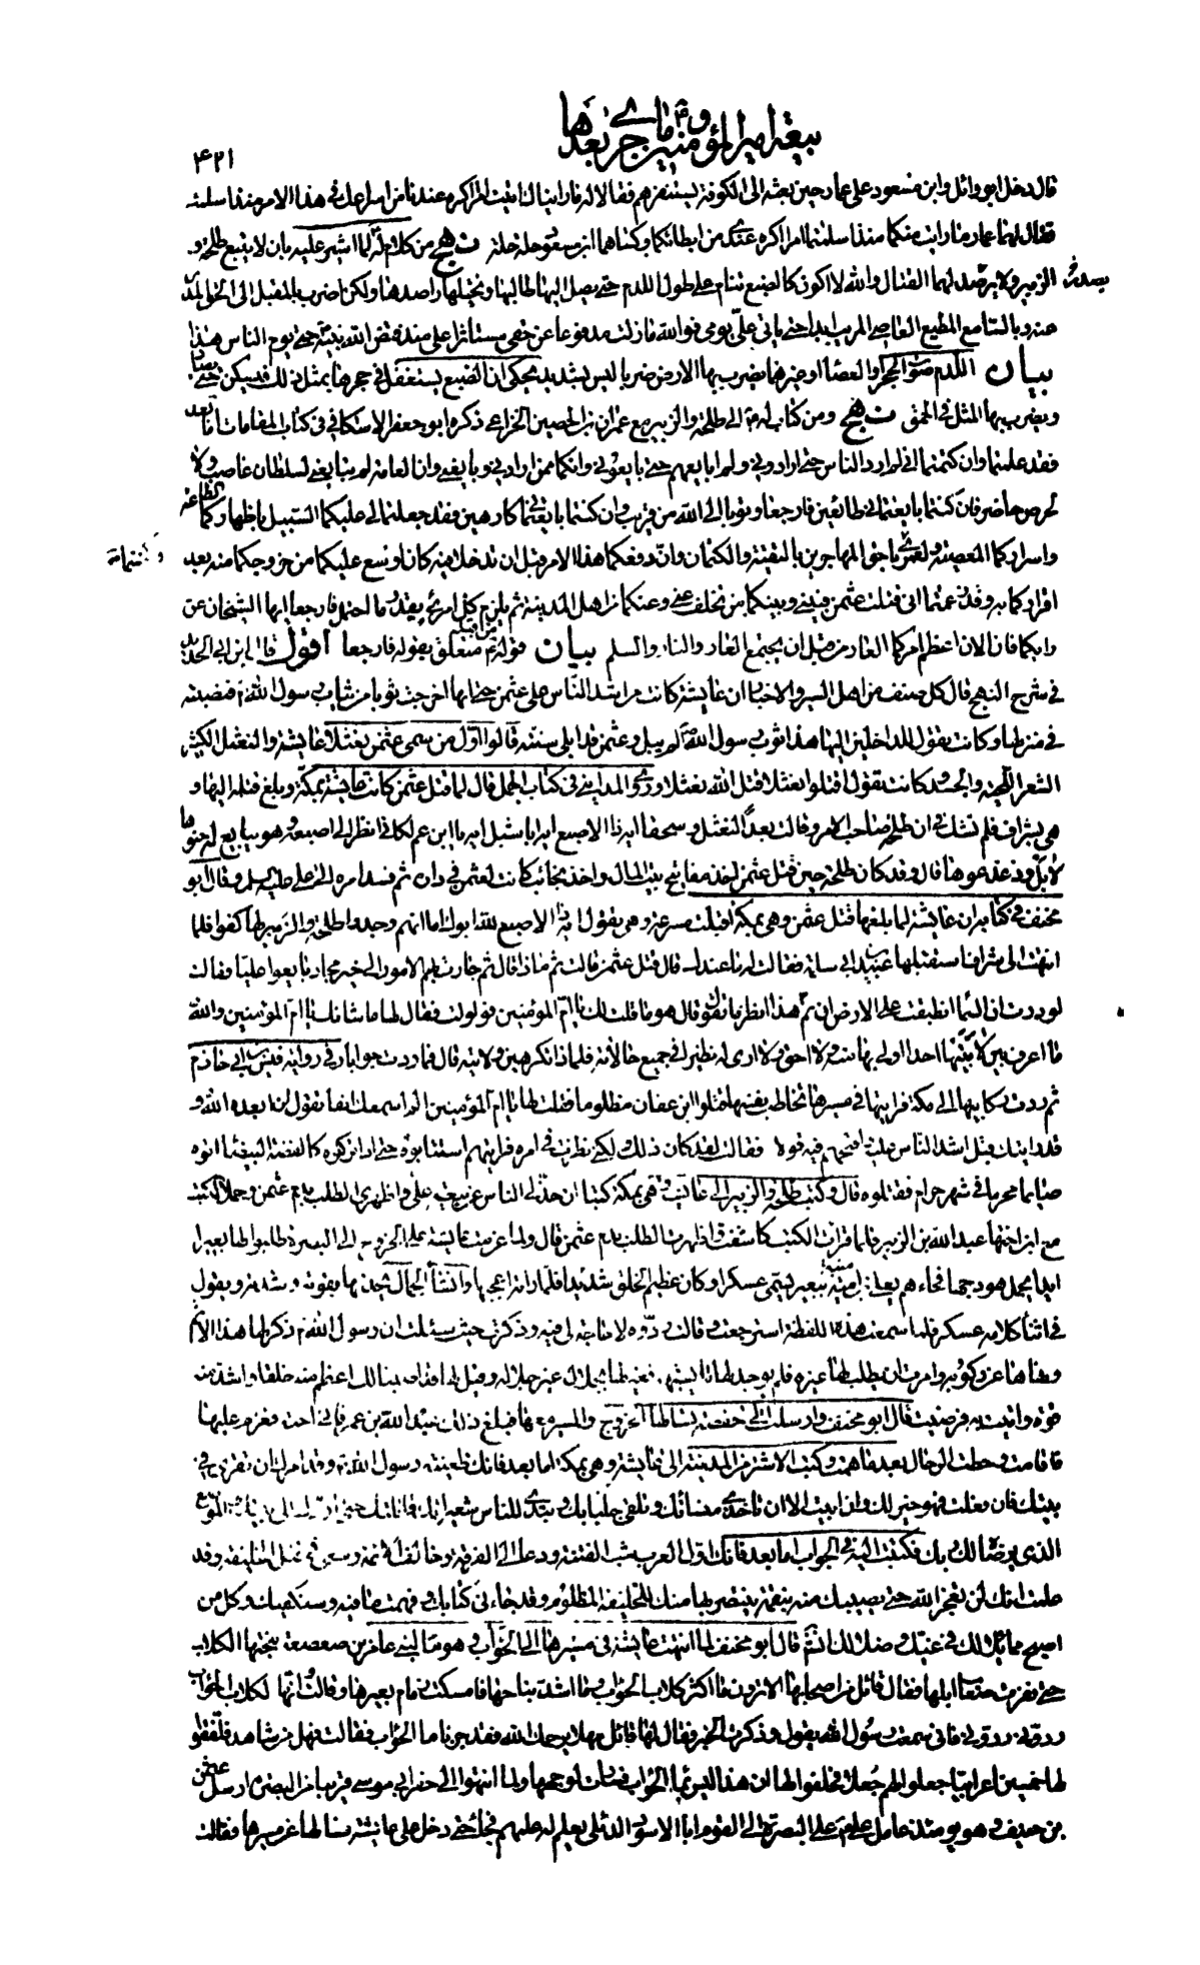 بيعة امير المؤمنين ع وما جرى بعدها
۴۲۱
قال دخل ابو وائل وابن مسعود على عمار حين بعثه الى الكوفة ليستنفرهم فقالا له ما راينا منك امرا اكره عندنا من اسراعك في هذا الامر منذ اسلمت
فقال لهما عمار ما رايت منكما منذ اسلمتما امرا اكره عندي من ابطائكما وكساهما حلة حلة نهج من كلام له لما اشير عليه بان لا يتبع طلحة و
الزبير ولا يرصد لهما القتال والله لا اكون كالضبع تنام على طول اللدم حتى يصل اليها طالبها ويختلها راصدها ولكن اضرب بالمقبل الى الحق المدبر
عنه وبالسامع المطيع العاصي المريب ابدا حتى ياتي علي يومي فوالله ما زلت مدفوعا عن حقي مستاثرا علي منذ قبض الله نبيه حتى يوم الناس هذا
بيان اللدم صوت الحجر او العصا او غيرهما يضرب بها الارض ضربا ليس بشديد يحكى ان الضبع يستغفل في جحرها بمثل ذلك فيسكن حتى يصاد
ويضرب بها المثل في الحمق نهج ومن كتاب له الى طلحة والزبير مع عمران بن الحصين الخزاعي ذكره ابو جعفر الاسكافي في كتاب المقامات اما بعد
فقد علمتما وان كتمتما اني لم ارد الناس حتى ارادوني ولم ابايعهم حتى بايعوني وانكما ممن ارادني وبايعني وان العامة لم تبايعني لسلطان غاصب ولا
لحرص حاضر فان كنتما بايعتماني طائعين فارجعا وتوبا الى الله من قريب وان كنتما بايعتماني كارهين فقد جعلتما لي عليكما السبيل باظهاركما الطاعة
واسراركما المعصية ولعمري ما كنتما باحق المهاجرين بالتقية والكتمان وان دفعكما هذا الامر قبل ان تدخلا فيه كان اوسع عليكما من خروجكما منه بعد
اقراركما به وقد زعمتما اني قتلت عثمن فبيني وبينكما من تخلف عني وعنكما من اهل المدينة ثم يلزم كل امرئ بقدر ما احتمل فارجعا ايها الشيخان عن
رايكما فان الان اعظم امركما العار من قبل ان يجتمع العار والنار والسلم بيان قوله من قبل متعلق بقوله فارجعا اقول قال ابن ابي الحديد
في شرح النهج قال كل صنف من اهل السير والاخبار ان عايشة كانت من اشد الناس على عثمن حتى انها اخرجت ثوبا من ثياب رسول الله فنصبته
في منزلها وكانت تقول للداخلين اليها هذا ثوب رسول الله لم يبل وعثمن قد ابلى سنته قالوا اول من سمى عثمن نعثلا عايشة والنعثل الكثير
الشعر اللحية والجسد كانت تقول اقتلوا نعثلا قتل الله نعثلا وروى المدايني في كتاب الجمل قال لما قتل عثمن كانت عايشة بمكة وبلغ قتله اليها و
هي بشراف فلم تشك في ان طلحة صاحب الامر وقالت بعدا لنعثل وسحقا ايه ذا الاصبع ايه ابا شبل ايه يا ابن عم لكاني انظر الى اصبعه وهو يبايع له حثوها
لا بل وذعذعوها قال وقد كان طلحة حين قتل عثمن اخذ مفاتيح بيت المال واخذ نجائب كانت لعثمن في داره ثم فسد امره الى علي عليه السلم وقال ابو
مخنف في كتابه ان عايشة لما بلغها قتل عثمن وهي بمكة اقبلت مسرعة وهي تقول ايه ذا الاصبع لله ابوك اما انهم وجدوا طلحة والزبير لها كفوا فلما
انتهت الى شراف استقبلها عبيد بن ابي سلمة فقالت له ما عندك قال قتل عثمن قالت ثم ماذا قال ثم حارت بهم الامور الى خير محار بايعوا عليا فقالت
لوددت ان السماء انطبقت على الارض ان تم هذا انظر ما تقول قال هو ما قلت لك يا ام المؤمنين فولولت فقال لها ما شانك يا ام المؤمنين والله
ما اعرف بين لابتيها احدا اولى بها منه ولا احق ولا ارى له نظيرا في جميع حالاته فلماذا تكرهين ولايته قال فما ردت جوابا وفي رواية قيس بن ابي حازم
ثم ردت ركابها الى مكة فرايتها في مسيرها تخاطب نفسها قتلوا ابن عفان مظلوما فقلت لها يا ام المؤمنين الم اسمعك انفا تقول ابعده الله و
قد رايتك قبل اشد الناس عليه واقبحهم فيه قولا فقالت لقد كان ذلك ولكني نظرت في امره فرايتهم استتابوه حتى اذا تركوه كالفضة البيضاء اتوه
صائما محرما في شهر حرام فقتلوه قال وكتب طلحة والزبير الى عايشة وهي بمكة كتبا ان خذلي الناس عن بيعة علي واظهري الطلب بدم عثمن وحملا الكتب
مع ابن اختها عبد الله بن الزبير فلما قرات الكتب كاشفت واظهرت الطلب بدم عثمن قال ولما عزمت عايشة على الخروج الى البصرة طلبوا لها بعيرا
ايدا يحمل هودجها فجاءهم يعلى بن امية ببعير يسمى عسكرا وكان عظيم الخلق شديدا فلما راته اعجبها وانشأ الجمال يحدثها بقوته وشدته ويقول
في اثناء كلامه عسكر فلما سمعت هذه اللفظة استرجعت وقالت ردوه لا حاجة لي فيه وذكرت حيث سئلت ان رسول الله ذكر لها هذا الاسم
ونهاها عن ركوبه وامرت ان يطلب لها غيره فلم يوجد لها ما يشبهه فغير لها بجلال غير جلاله وقيل لها اصبنا لك اعظم منه خلقا واشد منه
قوة واتيت به فرضيت قال ابو مخنف وارسلت الى حفصة تسالها الخروج والمسير معها فبلغ ذلك عبد الله بن عمر فاتى اخته فعزم عليها
فاقامت وحطت الرحال بعدما همت وكتب الاشتر من المدينة الى عايشة وهي بمكة اما بعد فانك ظعينة رسول الله وقد امرك ان تقري في
بيتك فان فعلت فهو خير لك وان ابيت الا ان تاخذي منساتك وتلقي جلبابك وتبدي للناس شعيراتك قاتلتك حتى اردك الى بيتك والموضع
الذي يرضاه لك ربك فكتبت اليه في الجواب اما بعد فانك اول العرب شب الفتنة ودعا الى الفرقة وخالف الائمة وسعى في قتل الخليفة وقد
علمت انك لن تعجز الله حتى يصيبك منه بنقمة ينتصر بها منك للخليفة المظلوم وقد جاءني كتابك وفهمت ما فيه وسنكفيك وكل من
اصبح مماثلا لك في غيك وضلالك انشم قال ابو مخنف لما انتهت عايشة في مسيرها الى الحوأب وهو ماء لبني عامر بن صعصعة نبحتها الكلاب
حتى نفرت صعاب ابلها فقال قائل من اصحابها الا ترون ما اكثر كلاب الحوأب وما اشد نباحها فامسكت زمام بعيرها وقالت وانها لكلاب الحوأب
ردوني ردوني فاني سمعت رسول الله يقول وذكرت الخبر فقال لها قائل مهلا يرحمك الله فقد جزنا ماء الحوأب فقالت فهل من شاهد فلفقوا
لها خمسين اعرابيا جعلوا لهم جعلا فحلفوا لها ان هذا ليس بماء الحوأب فسارت لوجهها ولما انتهوا الى حفر ابي موسى قريبا من البصرة ارسل عثمن
بن حنيف وهو يومئذ عامل علي ع على البصرة الى القوم ابا الاسود الدئلي يعلم له علمهم فجاء حتى دخل على عايشة فسالها عن مسيرها فقالت